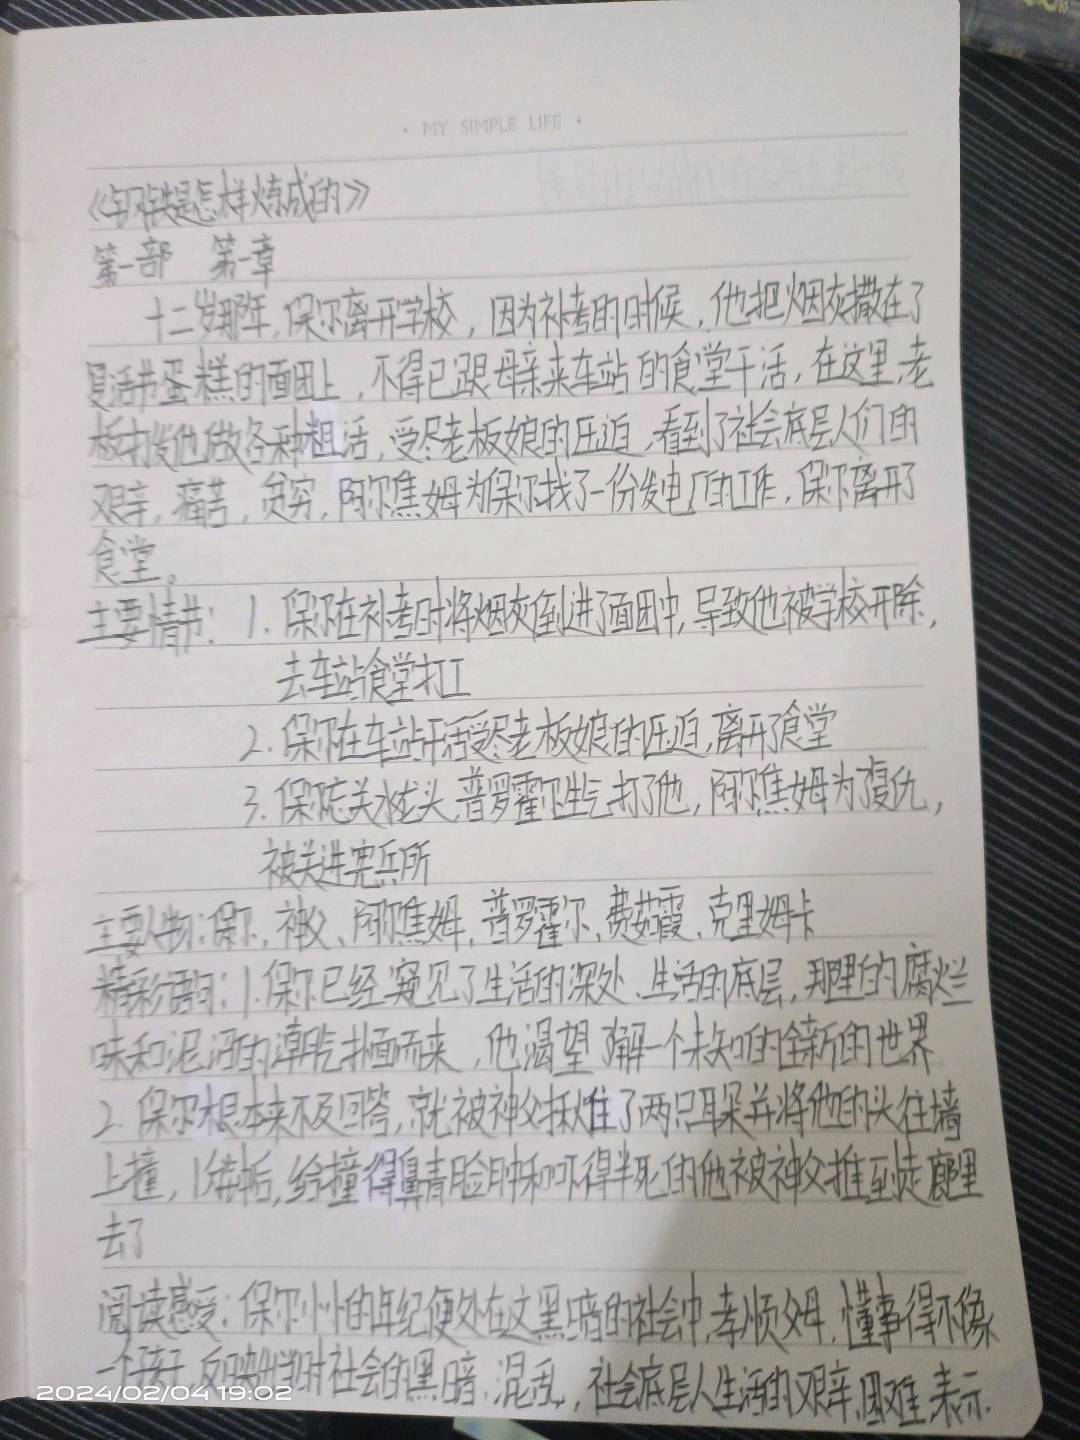 · MY SIMPLE LIFE ·
《钢铁是怎样炼成的》
第一部 第一章
十二岁那年,保尔离开学校,因为补考的时候,他把烟灰撒在了
复活节蛋糕的面团上,不得已跟母亲来车站的食堂干活,在这里,老
板打发他做各种粗活,受尽老板娘的压迫,看到了社会底层人们的
艰辛,痛苦,贫穷,阿尔焦姆为保尔找了一份发电厂的工作,保尔离开了
食堂。
主要情节:1.保尔在补考时将烟灰倒进了面团中,导致他被学校开除,
去车站食堂打工
2.保尔在车站干活受尽老板娘的压迫,离开了食堂
3.保尔忘关水龙头,普罗霍尔生气打了他,阿尔焦姆为了复仇,
被关进宪兵所
主要人物:保尔,神父、阿尔焦姆,普罗霍尔、费茹霞、克里姆卡
精彩语句:1.保尔已经窥见了生活的深处、生活的底层,那里的腐烂
味和泥沼的潮气扑面而来,他渴望了解一个未知的全新的世界
2.保尔根本来不及回答,就被神父揪住了两只耳朵并将他的头往墙
上撞,几分钟后,给撞得鼻青脸肿和吓得半死的他被神父推到走廊里
去了
阅读感受:保尔小小的年纪便处在这黑暗的社会中,孝顺父母,懂事得不像
一个孩子,反映出当时社会的黑暗、混乱,社会底层人生活的艰辛,困难,表示
2024/02/04 19:02